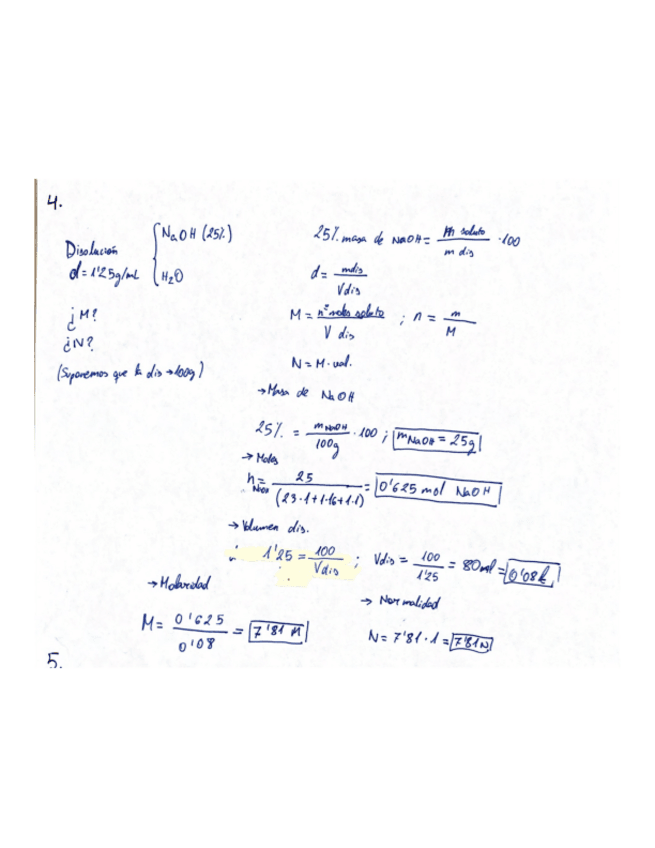 4.
Disolución
d = 1'25g/mL
NaOH (25%)
H₂O
¿M?
¿N?
(Suponemos que la dis → 100g)
25% masa de NaOH = m soluto / m dis · 100
d = mdis / Vdis
M = nº moles soluto / V dis ; n = m / M
N = M · val.
→ Masa de NaOH
25% = mNaOH / 100g · 100 ; mNaOH = 25g
→ Moles
nNaOH = 25 / (23·1+1·16+1·1) = 0'625 mol NaOH
→ Volumen dis.
1'25 = 100 / Vdis ; Vdis = 100 / 1'25 = 80ml = 0'08L
→ Molaridad
M = 0'625 / 0'08 = 7'81 M
→ Normalidad
N = 7'81 · 1 = 7'81 N
5.